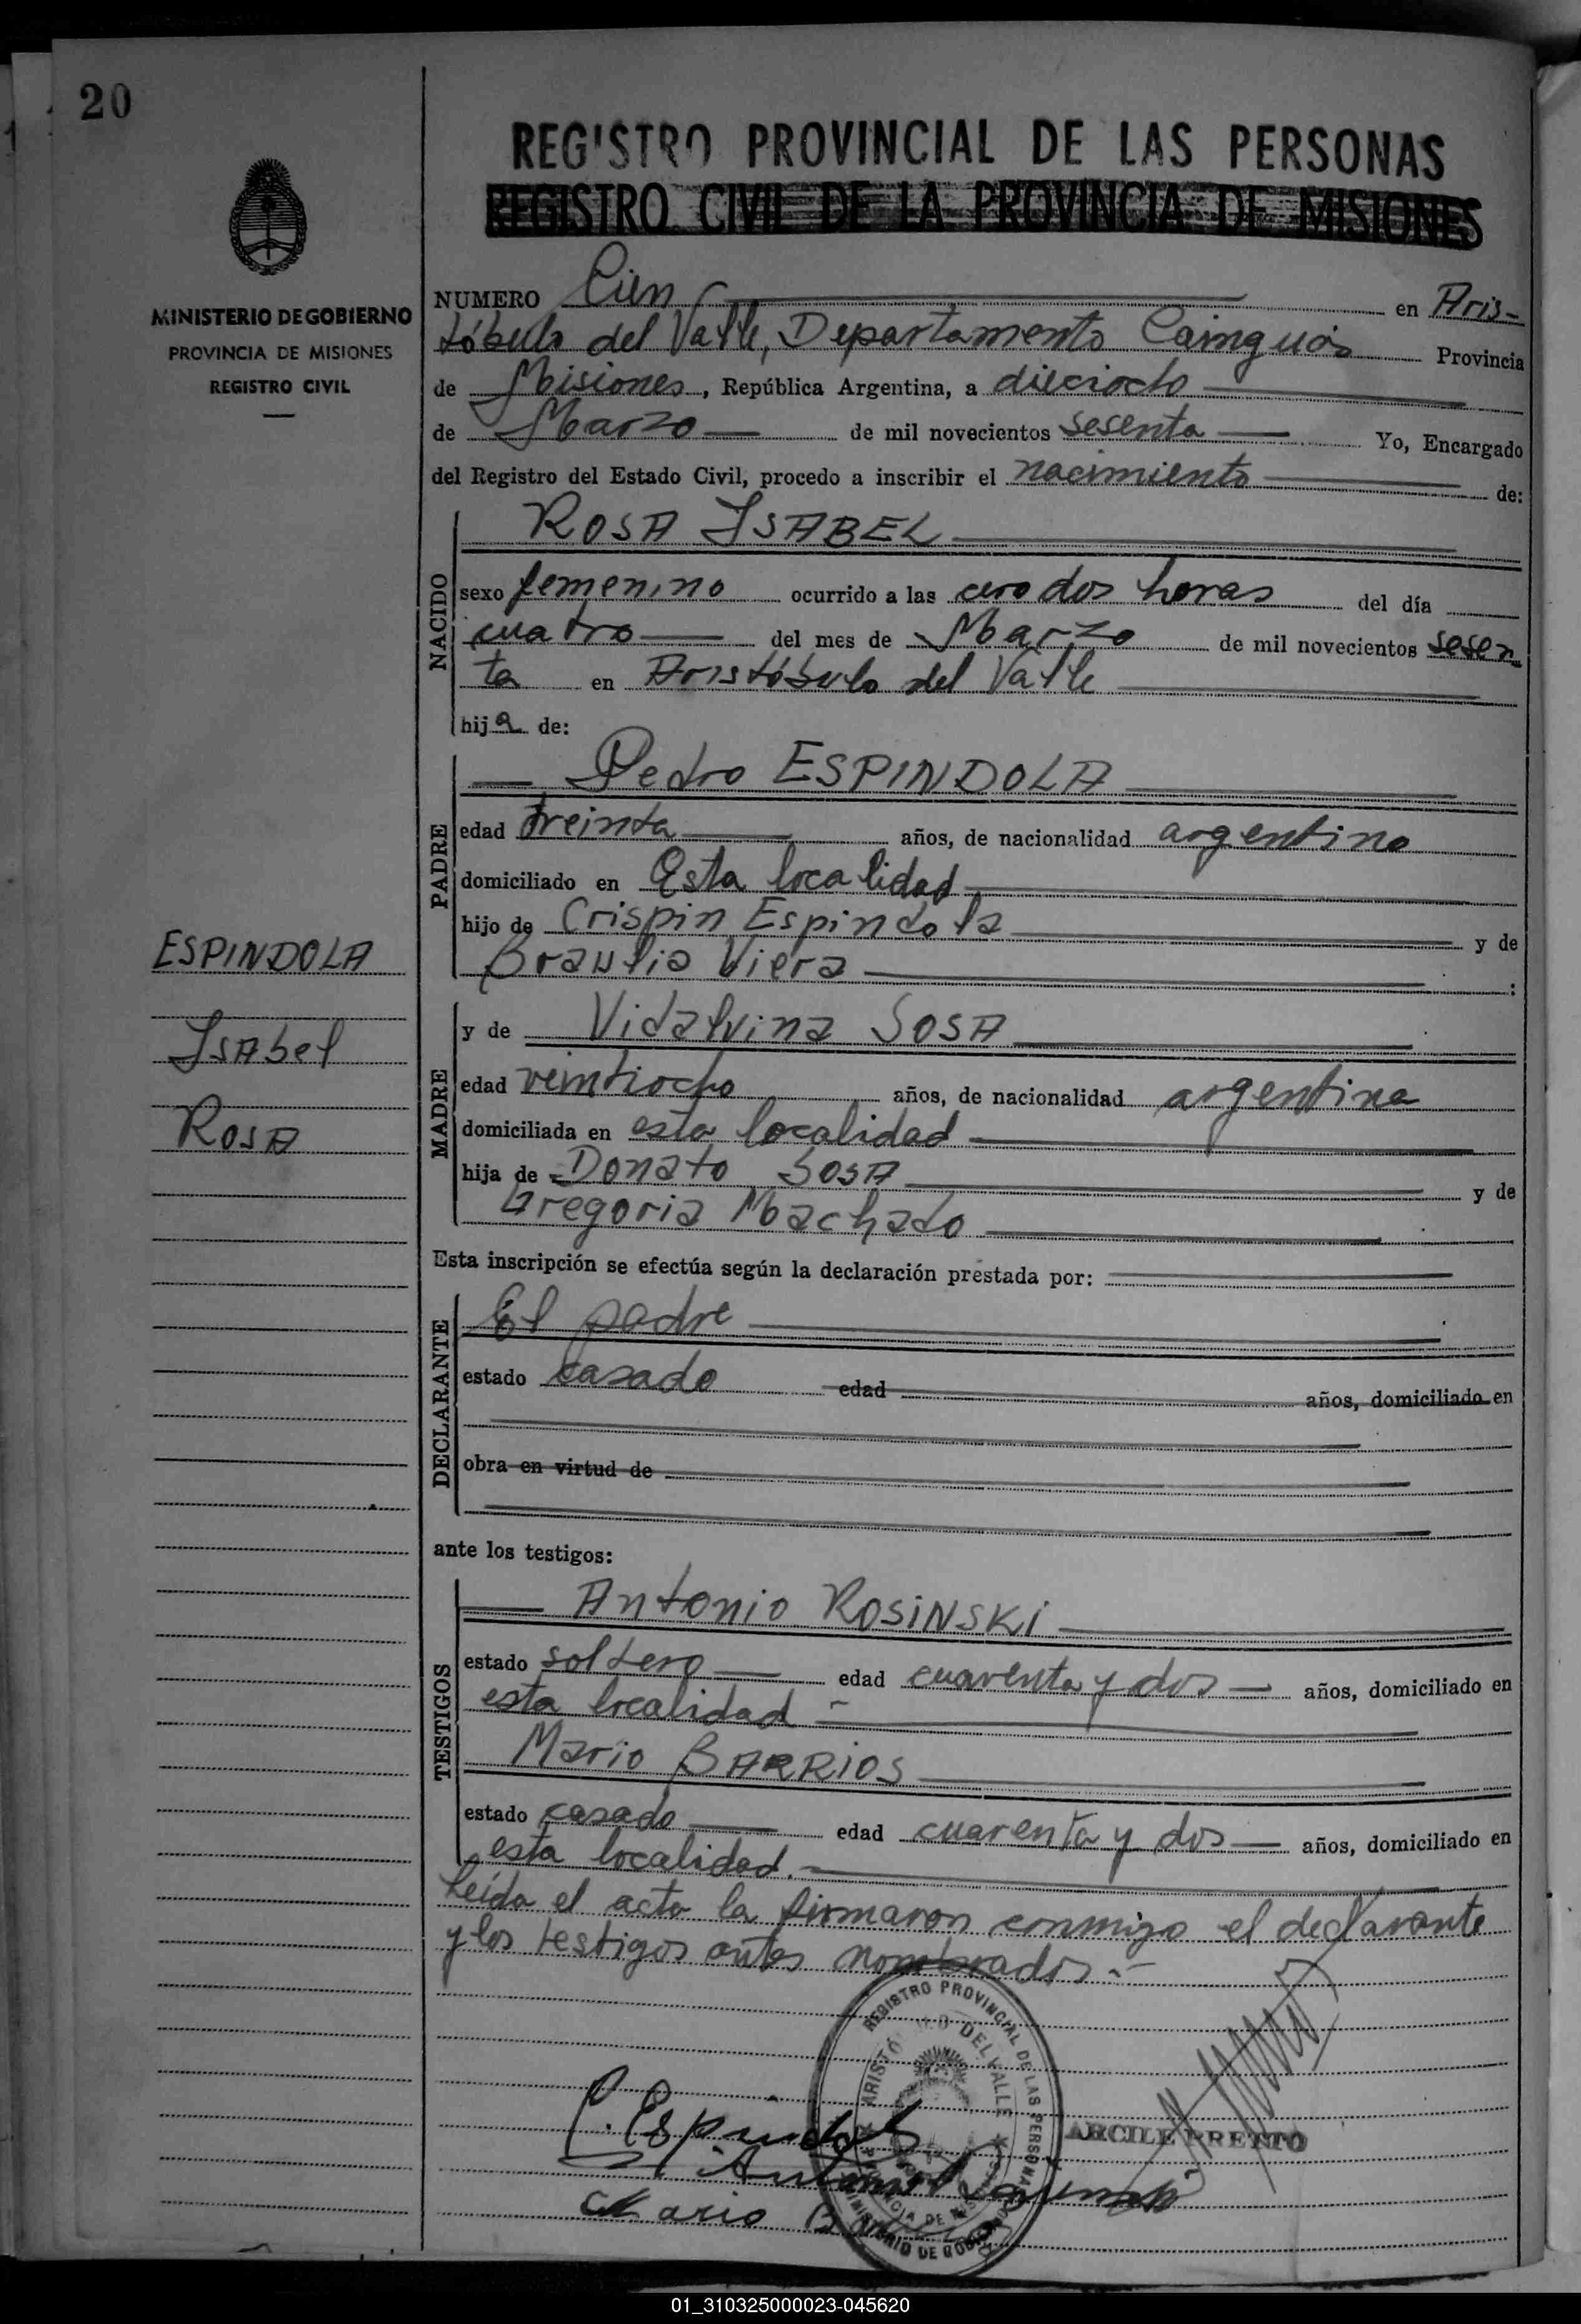 20
MINISTERIO DE GOBIERNO
PROVINCIA DE MISIONES
REGISTRO CIVIL
ESPINDOLA
Isabel
Rosa
REGISTRO PROVINCIAL DE LAS PERSONAS
REGISTRO CIVIL DE LA PROVINCIA DE MISIONES
NUMERO Cien en Aris-
tóbulo del Valle, Departamento Cainguás Provincia
de Misiones, República Argentina, a dieciocho
de Marzo de mil novecientos sesenta Yo, Encargado
del Registro del Estado Civil, procedo a inscribir el nacimiento de:
NACIDO
ROSA ISABEL
sexo femenino ocurrido a las cero dos horas del día
cuatro del mes de Marzo de mil novecientos sesen
ta en Aristóbulo del Valle
hija de:
PADRE
Pedro ESPINDOLA
edad treinta años, de nacionalidad argentino
domiciliado en Esta localidad
hijo de Crispin Espindola y de
Braulia Viera :
MADRE
y de Vidalvina SOSA
edad veintiocho años, de nacionalidad argentina
domiciliada en esta localidad
hija de Donato SOSA y de
Gregoria Machado
Esta inscripción se efectúa según la declaración prestada por:
DECLARANTE
El padre
estado casado edad años, domiciliado en
obra en virtud de
ante los testigos:
TESTIGOS
Antonio ROSINSKI
estado soltero edad cuarenta y dos años, domiciliado en
esta localidad -
Mario BARRIOS
estado casado edad cuarenta y dos años, domiciliado en
esta localidad.
Leída el acta la firmaron conmigo el declarante
y los testigos antes nombrados.-
REGISTRO PROVINCIAL DE LAS PERSONAS
ARISTÓBULO DEL VALLE
PROVINCIA DE MISIONES
MINISTERIO DE GOBIERNO
ARCILE PRETTO
P. Espindola
Antonio
Mario B
01_310325000023-045620